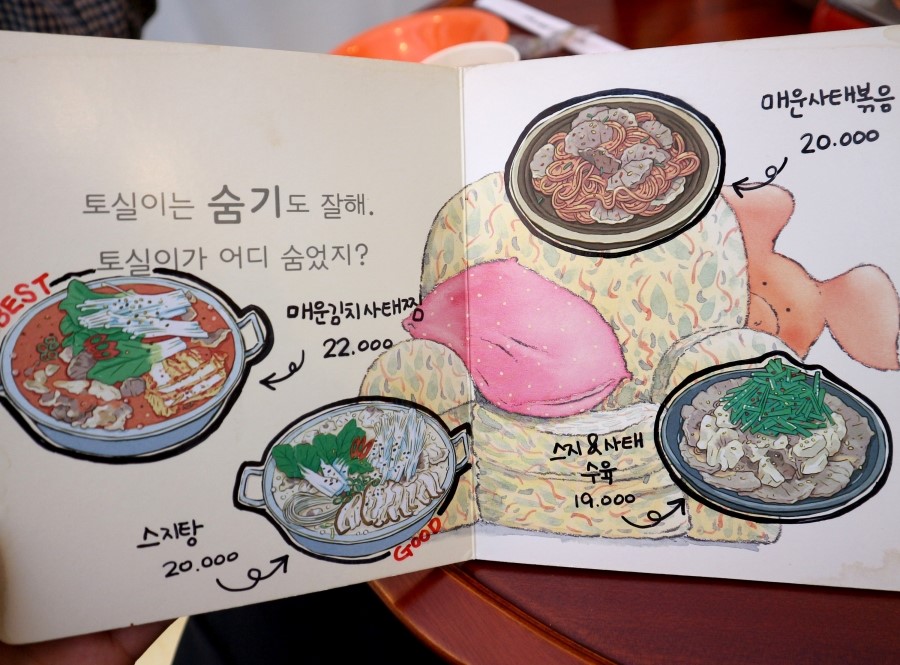 토실이는 숨기도 잘해.
토실이가 어디 숨었지?
BEST
매운김치사태찜
22.000
스지탕
20.000
GOOD
매운사태볶음
20.000
스지&사태
수육
19.000